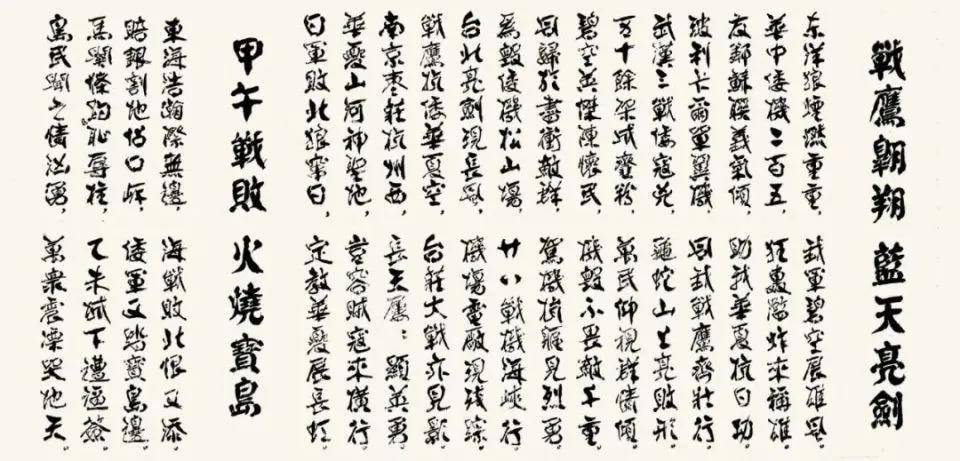 戰鷹翺翔 藍天亮劍
东洋狼煙燃重重， 我軍碧空展雄風。
華中倭機二百五， 狂轟濫炸來稱雄。
友鄰蘇联義氣傾， 助我華夏抗日功。
波利卡爾軍翼機， 同我戰鷹齊壯行。
武漢三戰倭寇 龜蛇山上亮敗形。
五十餘架成齏粉， 萬民仰視群情傾。
碧空英傑陳懷民， 機毀不畏敵千重。
同歸於盡衝敵群， 駕機撞 見烈勇。
爲毀倭機松山場， 廿八戰機海峽行。
台北亮劍現長風， 機場 現殘踪。
戰鷹抗倭華夏空， 台莊大戰亦見影。
南京枣莊杭州西， 長天鷹：顯英勇。
華夏山河神聖地， 豈容賊寇來橫行。
日軍敗北狼窜日， 定教華夏展長虹。
甲午戰敗 火燒寶島
東海浩瀚際無邊， 海戰敗北恨又添。
賠銀割地 口岸， 倭軍又踏寶島邊。
馬關條約恥辱柱， 乙未城下遭逼簽。
島民聞之情汹湧， 萬衆震慄哭地天。